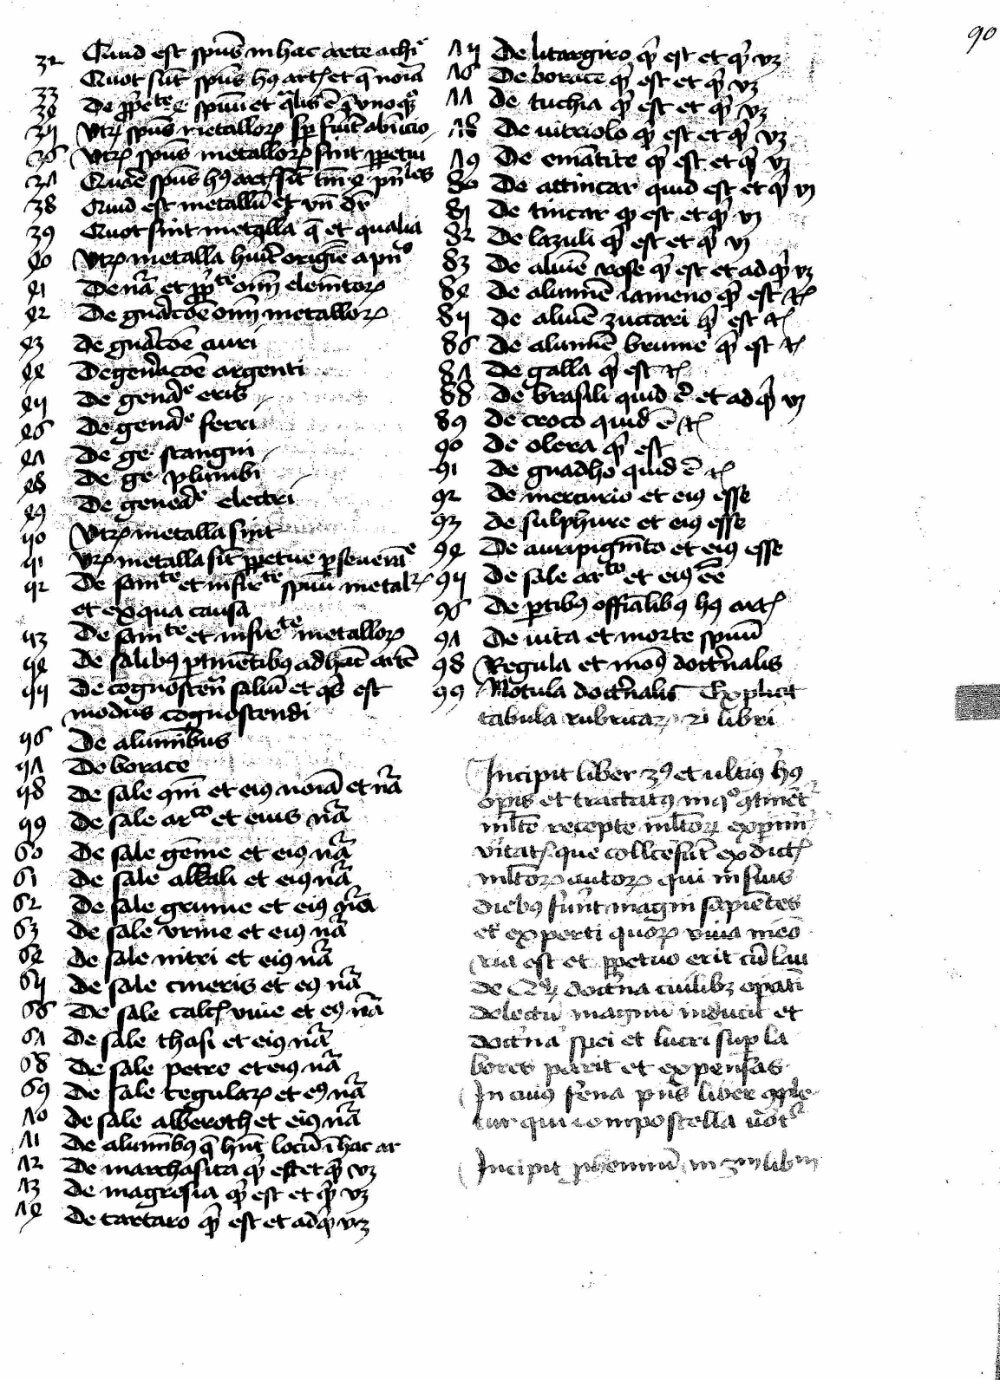 90
32 Quid est spūs in hac arte achiᵉ
33 Quot sūt spūs hꝰ artꝭ et q̄ noīa
34 De ꝓp̄etᵗᵉ spūum et q̄lis ē
35 Vtrꝝ spūs metallorꝝ
36 Vtrꝝ spūs metallorꝝ sint ꝑpetui
37 spūs hꝰ artꝭ sūt
38 Quid est metallū et vn̄ dr̄
39 Quot sint metalla q̄ et qualia
40 Vtrꝝ metalla hūt origīe a
41 De nā et ꝓp̄ᵗᵉ oīm elemtorꝝ
42 De gn̄acōe oīm metallorꝝ
43 De gn̄acōe auri
44 De gen̄acōe argenti
45 De gen̄aᵉ eris
46 De gen̄aᵉ ferri
47 De ge stangni
48 De ge plumbi
49 De geneaᵉ electri
50 Vtrꝝ metalla sint
51 Vtrꝝ metalla sūt ꝑpetue
52 De sanᵗᵉ et infirᵗᵉ spūum metalꝝ
et ex qua causa
53 De sanᵗᵉ et infirᵗᵉ metallorꝝ
54 De salibꝰ ꝑtinētibꝰ ad hāc artē
55 De cognoscen̄ saliū et q̄s est
modus cognoscendi
56 De aluminibus
57 De borace
58 De sale qm̄ et eiꝰ noīa et nā
59 De sale arᶜᵒ et eius nā
60 De sale gēme et eiꝰ nā
61 De sale alkali et eiꝰ nā
62 De sale grume et eiꝰ
63 De sale vrine et eiꝰ nā
64 De sale nitri et eiꝰ nā
65 De sale cineris et eꝰ nā
66 De sale calcꝭ viue et eꝰ nā
67 De sale thasi et eiꝰ nā
68 De sale petre et eiꝰ nā
69 De sale tegularꝝ et eꝰ nā
70 De sale alberoth et eiꝰ nā
71 De aluminibꝰ q̄ hn̄t locū ī hac ar
72 De marchasita qᵈ est et qᵈ vꝫ
73 De magnesia qᵈ est et qᵈ vꝫ
74 De tartaro qᵈ est et ad qᵈ vꝫ
75 De litargiro qᵈ est et qᵈ vꝫ
76 De borace qᵈ est et qᵈ vꝫ
77 de tuchia qᵈ est et qᵈ vꝫ
78 De uitriolo qᵈ est et qᵈ vꝫ
79 De ematite qᵈ est et qᵈ vꝫ
80 De attincar quid est et qᵈ vꝫ
81 De tincar qᵈ est et qᵈ vꝫ
82 De lazuli qᵈ est et qᵈ vꝫ
83 De alumē rose qᵈ est et ad qᵈ vꝫ
84 De alumīe iameno qᵈ est ⁊ꝭ
85 De alumē zuccari qᵈ est ⁊ꝭ
86 De alumīe brumē qᵈ est ⁊ꝭ
87 De galla qᵈ est ⁊ꝭ
88 De brasili quid ē et ad qᵈ vꝫ
89 De croco quid ē ⁊ꝭ
90 De olera qᵈ est
91 De guadho quid ē ⁊ꝭ
92 De mercurio et eiꝰ esse
93 De sulphure et eiꝰ esse
94 De auripigmēto et eiꝰ esse
95 De sale arᶜᵒ et eiꝰ ēe
96 De ꝑtibꝰ offīalibꝰ hꝰ artꝭ
97 De uita et morte spūum
98 Regula et modꝰ doct̄nalis
99 Notula doct̄nalis Explicit
tabula rubricarꝝ libri
Incipit liber 3ꝰ et ultiꝰ hꝰ
opis et tractatꝰ in qᵒ ꝯtinēt̄
mlte recepte mltorꝝ experim̄
uītatꝭ que collcē sūt ex dictꝭ
mltorꝝ autorꝝ qui in suis
diebꝰ fuer̄t magni sapiētes
et experti quorꝝ viua memo
ria est et ꝑpetuo erit cū lau
de doct̄na ciuilibꝫ
delectu magnū inducit et
doct̄na spei et lucri suꝑ la
bores parit et expensas
In cuiꝰ pn̄s liber ꝯple
tur qui compostella
Incipit ꝓhemiū in 3m libm